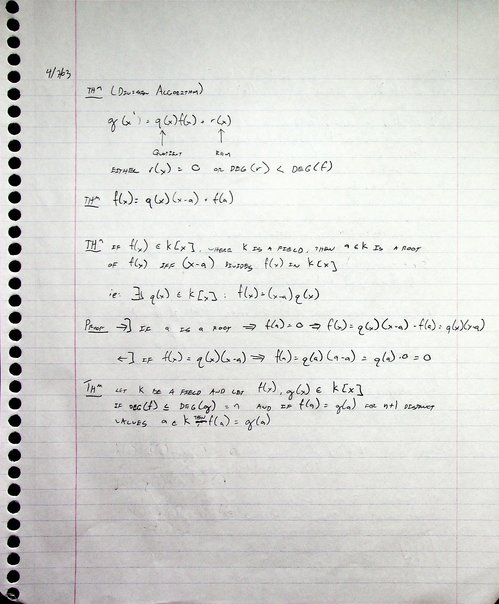 4/7/03
THM (DIVISION ALGORITHM)
g(x) = q(x)f(x) + r(x)
↑ ↑
QUOTIENT REM
EITHER r(x) = 0 OR DEG(r) < DEG(f)
THM f(x) = q(x)(x-a) + f(a)
THM IF f(x) ∈ K[x], WHERE K IS A FIELD, THEN a ∈ K IS A ROOT
OF f(x) IFF (x-a) DIVIDES f(x) IN K[x]
ie: ∃ q(x) ∈ K[x] : f(x) = (x-a)q(x)
PROOF →] IF a IS A ROOT ⇒ f(a) = 0 ⇒ f(x) = q(x)(x-a) + f(a) = q(x)(x-a)
←] IF f(x) = q(x)(x-a) ⇒ f(a) = q(a)(a-a) = q(a)·0 = 0
THM LET K BE A FIELD AND LET f(x), g(x) ∈ K[x]
IF DEG(f) ≤ DEG(g) = n AND IF f(a) = g(a) FOR n+1 DISTINCT
VALUES a ∈ K THEN f(a) = g(a)